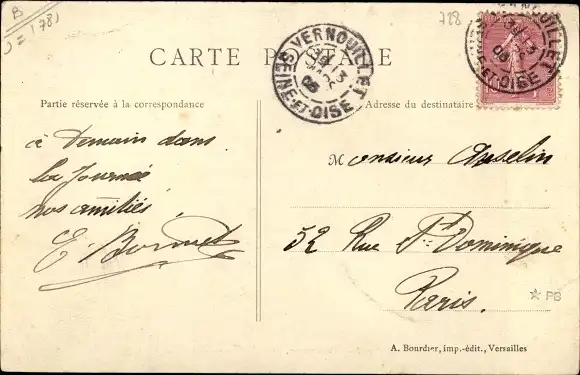 B
J = 178)
728
CARTE POSTALE
VERNOUILLET
SEINE-ET-OISE
VERNOUILLET
SEINE-ET-OISE
Partie réservée à la correspondance
Adresse du destinataire
à Demain dans
la Journée
nos amitiés
E. Bonnet
Monsieur Anselin
52 Rue St Dominique
Paris.
☆ PB
A. Bourdier, imp.-édit., Versailles